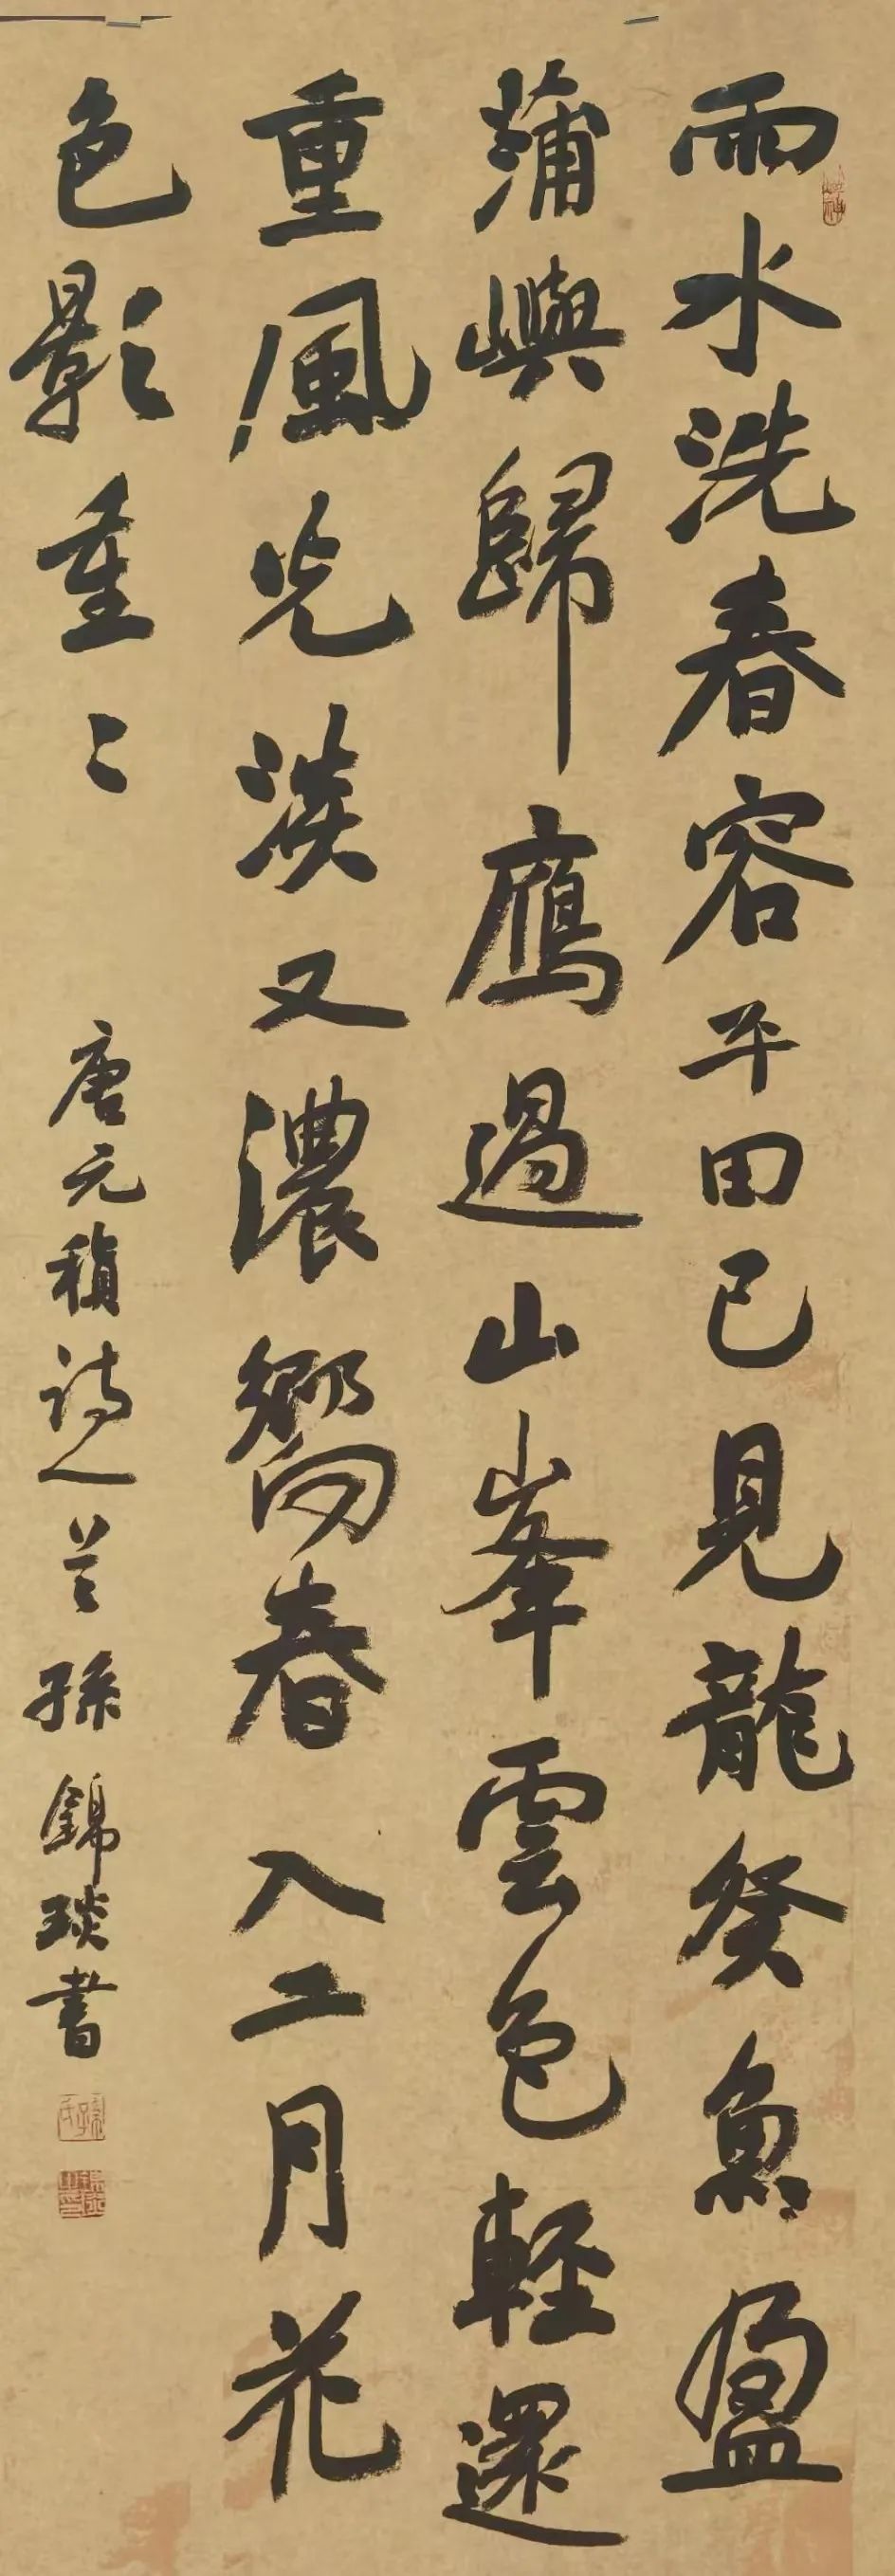 雨水洗春容平田已見龍祭魚盈
蒲嶼歸鴈過山峯雲色輕還
重風光淡又濃嚮春入二月花
色影重〻 唐元稹詩一首 孫錦琰書